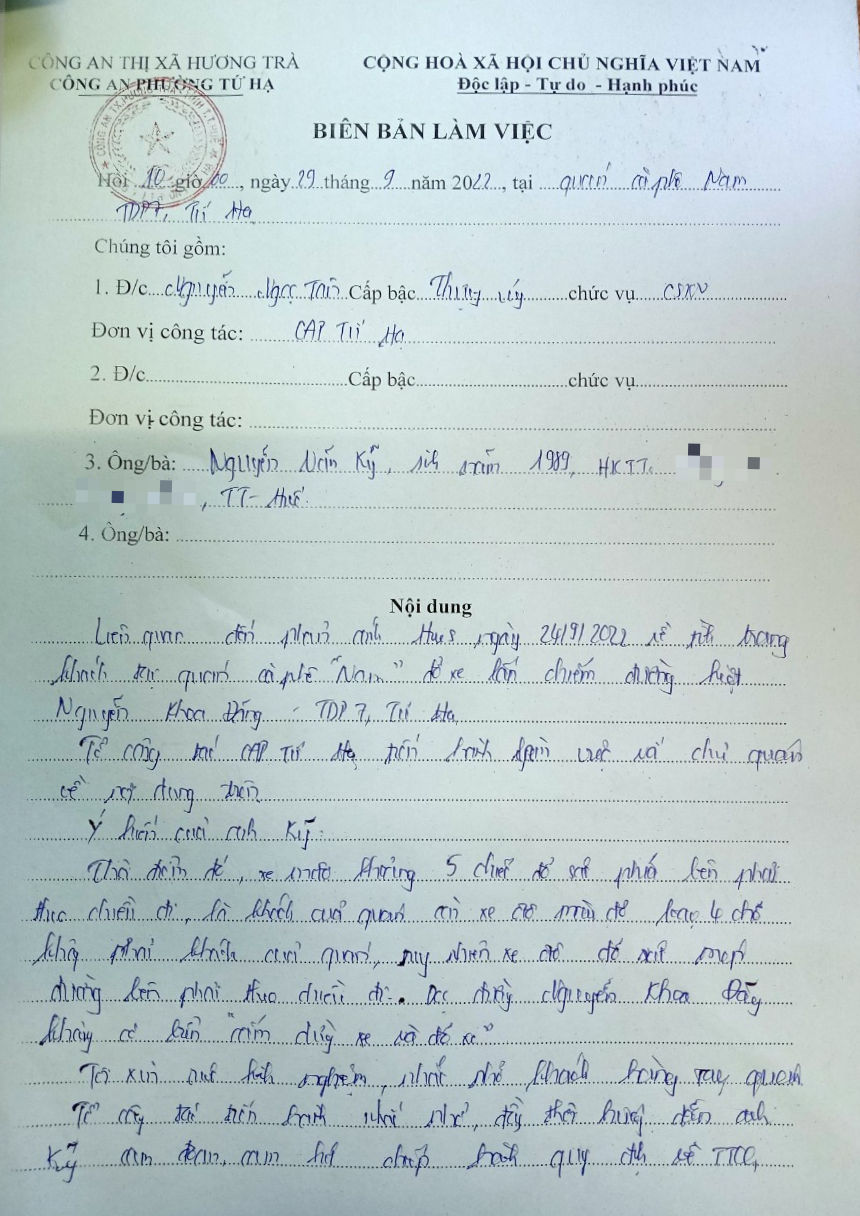 CÔNG AN THỊ XÃ HƯƠNG TRÀ
CÔNG AN PHƯỜNG TỨ HẠ
CỘNG HOÀ XÃ HỘI CHỦ NGHĨA VIỆT NAM
Độc lập - Tự do - Hạnh phúc
BIÊN BẢN LÀM VIỆC
Hồi 10 giờ 00, ngày 29 tháng 9 năm 2022, tại quán cà phê Nam
TDP7, Tứ Hạ
Chúng tôi gồm:
1. Đ/c Nguyễn Ngọc Cấp bậc Thượng úy chức vụ CSKV
Đơn vị công tác: CAP Tứ Hạ
2. Đ/c Cấp bậc chức vụ
Đơn vị công tác:
3. Ông/bà: Nguyễn Văn Kỹ, sinh năm 1989, HKTT:
, TT-Huế
4. Ông/bà:
Nội dung
Liên quan đến phản ánh HueS ngày 24/9/2022 về tình trạng
khách tại quán cà phê "Nam" đỗ xe lấn chiếm đường kiệt
Nguyễn Khoa Đăng - TDP 7, Tứ Hạ
Tổ công tác CAP Tứ Hạ tiến hành làm việc với chủ quán
về nội dung trên
Ý kiến của anh Kỹ:
Thời điểm đó, xe môtô khoảng 5 chiếc đỗ phía bên phải
theo chiều đi, là khách của quán còn xe ôtô màu đỏ loại 4 chỗ
không phải khách của quán, tuy nhiên xe ôtô đỗ sát mép
đường bên phải theo chiều đi. Dọc đường Nguyễn Khoa Đăng
không có biển "cấm dừng xe và đỗ xe"
Tôi xin rút kinh nghiệm, nhắc nhở khách hàng xung quanh
Tổ công tác tiến hành nhắc nhở, đồng thời hướng dẫn anh
Kỹ cam đoan, cam kết chấp hành quy định về TTCC,